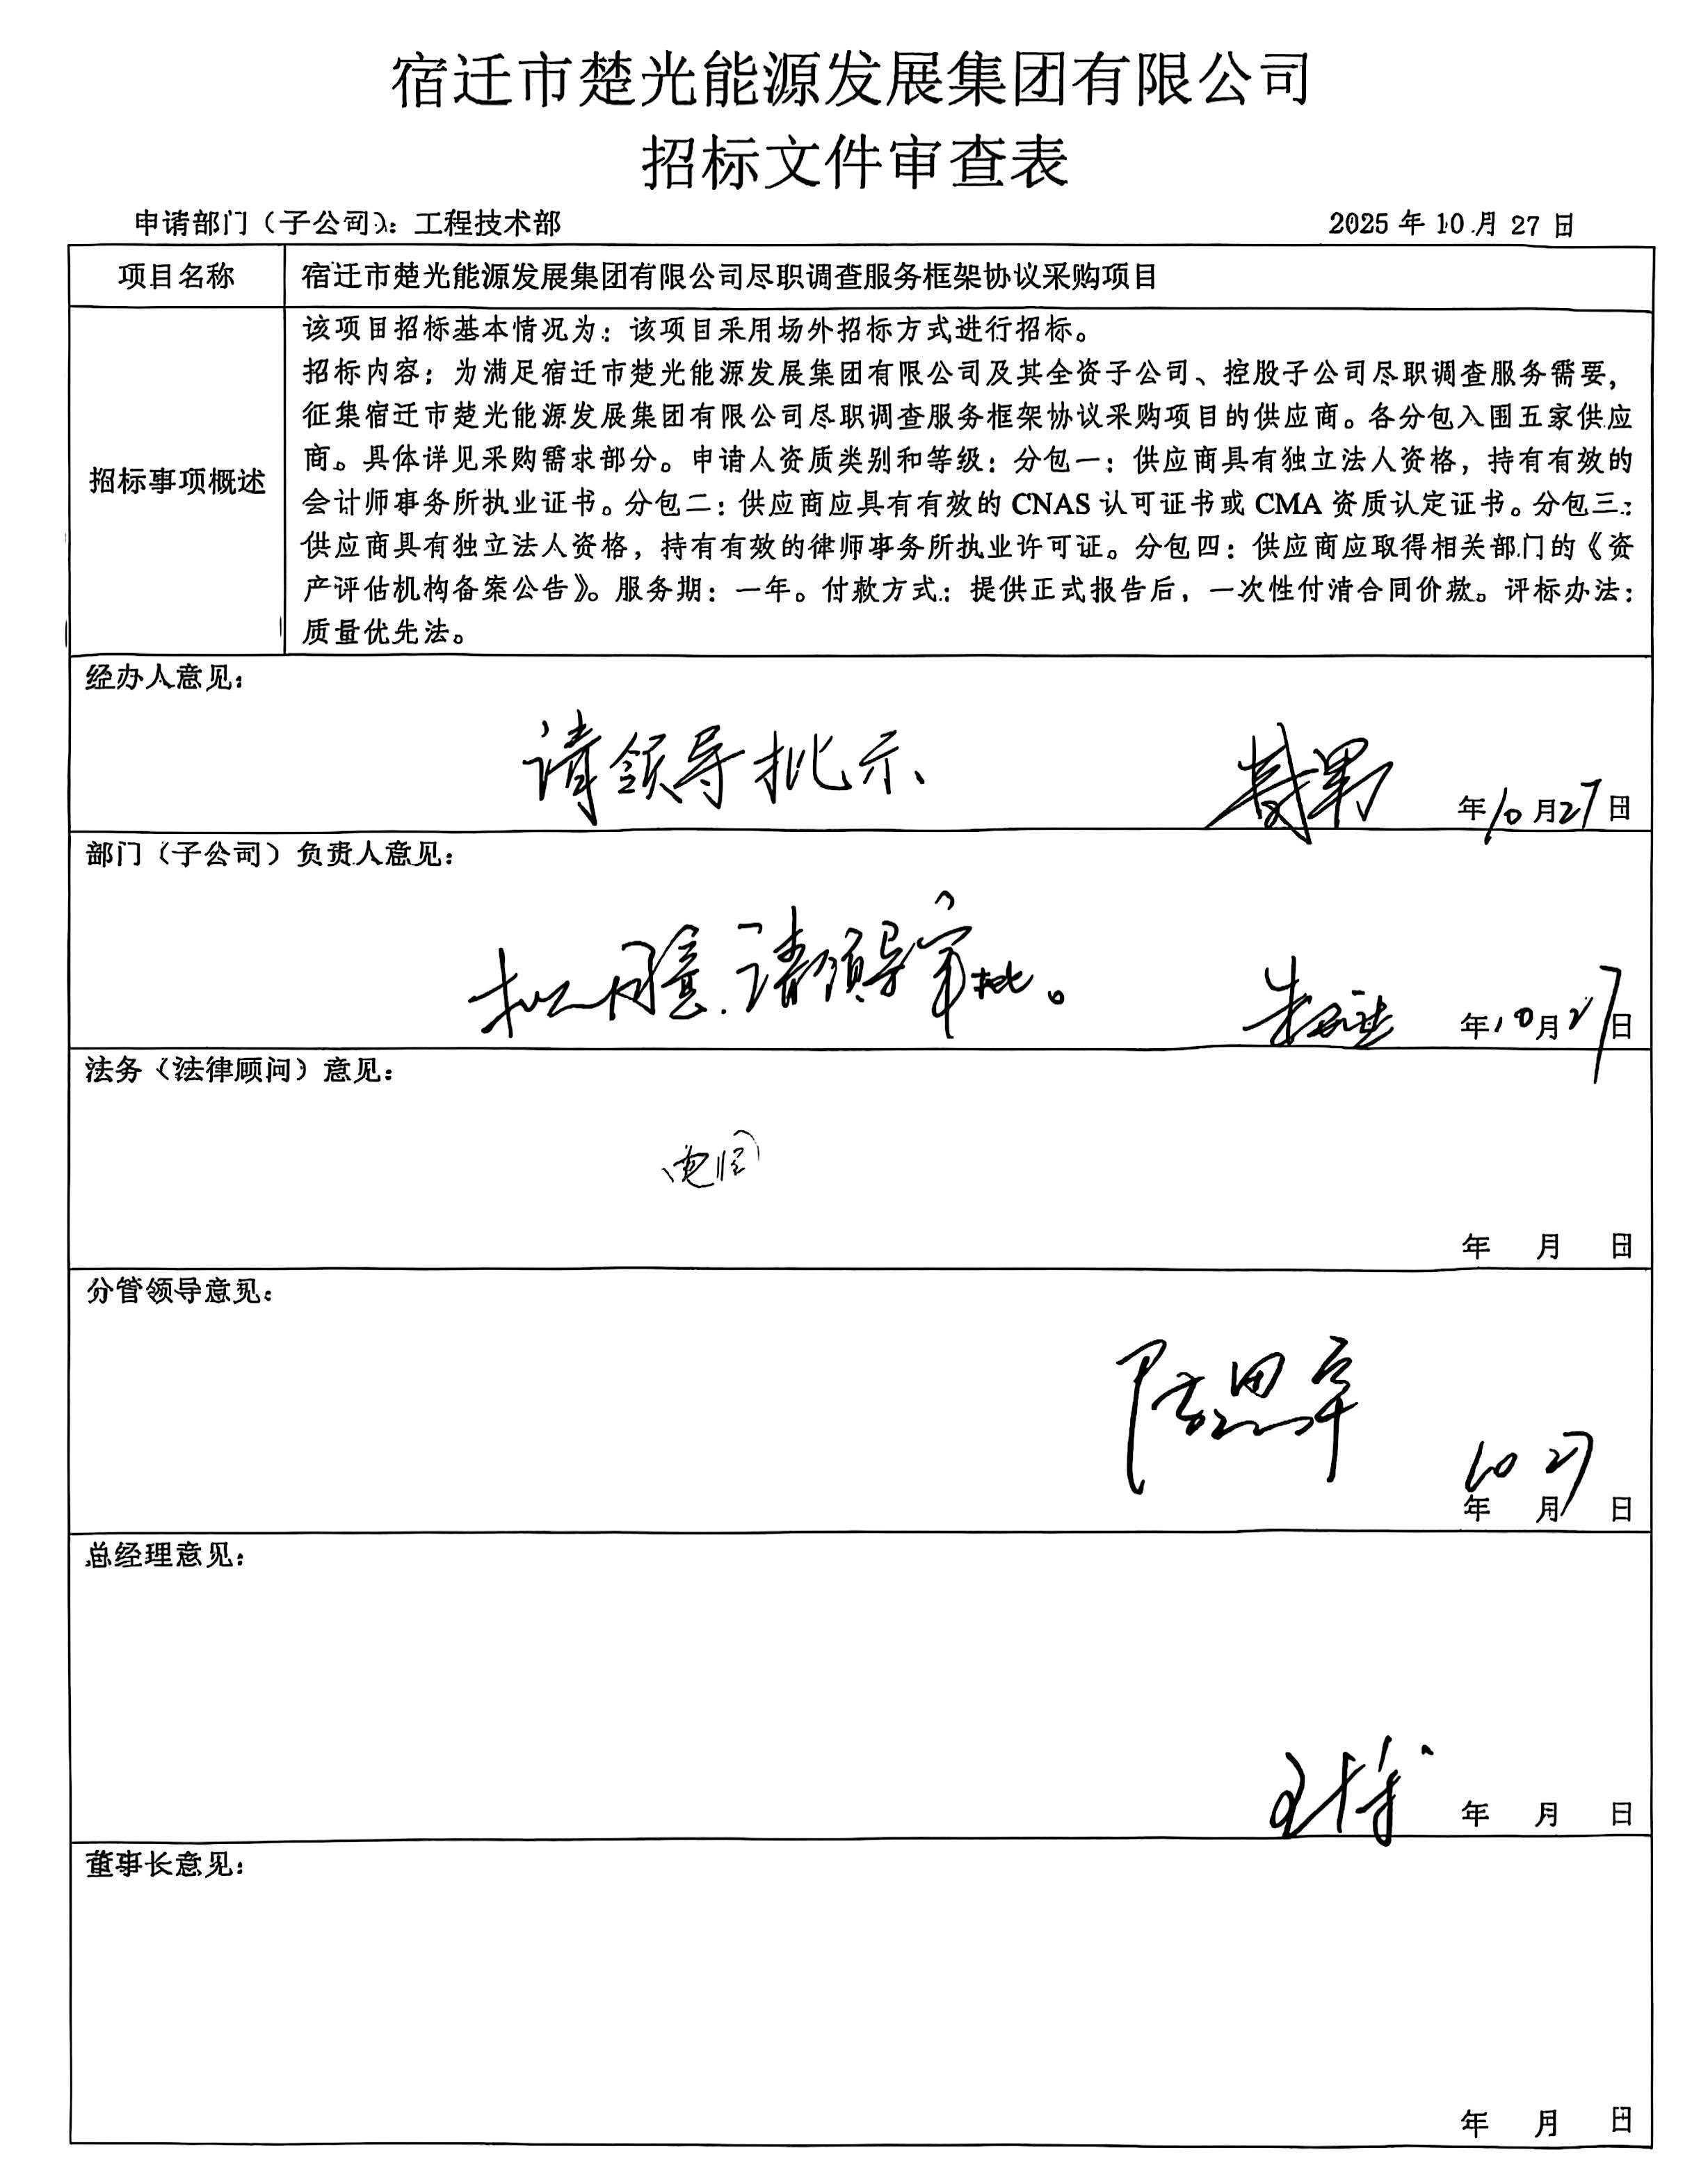 宿迁市楚光能源发展集团有限公司
招标文件审查表
申请部门（子公司）：工程技术部 2025 年 10 月 27 日
项目名称 宿迁市楚光能源发展集团有限公司尽职调查服务框架协议采购项目
招标事项概述
该项目招标基本情况为：该项目采用场外招标方式进行招标。
招标内容：为满足宿迁市楚光能源发展集团有限公司及其全资子公司、控股子公司尽职调查服务需要，
征集宿迁市楚光能源发展集团有限公司尽职调查服务框架协议采购项目的供应商。各分包入围五家供应
商。具体详见采购需求部分。申请人资质类别和等级：分包一：供应商具有独立法人资格，持有有效的
会计师事务所执业证书。分包二：供应商应具有有效的 CNAS 认可证书或 CMA 资质认定证书。分包三：
供应商具有独立法人资格，持有有效的律师事务所执业许可证。分包四：供应商应取得相关部门的《资
产评估机构备案公告》。服务期：一年。付款方式：提供正式报告后，一次性付清合同价款。评标办法：
质量优先法。
经办人意见：
请领导批示、
年10月27日
部门（子公司）负责人意见：
拟同意.请领导审批。
年10月27日
法务（法律顾问）意见：
年 月 日
分管领导意见：
10 27
年 月 日
总经理意见：
年 月 日
董事长意见：
年 月 日